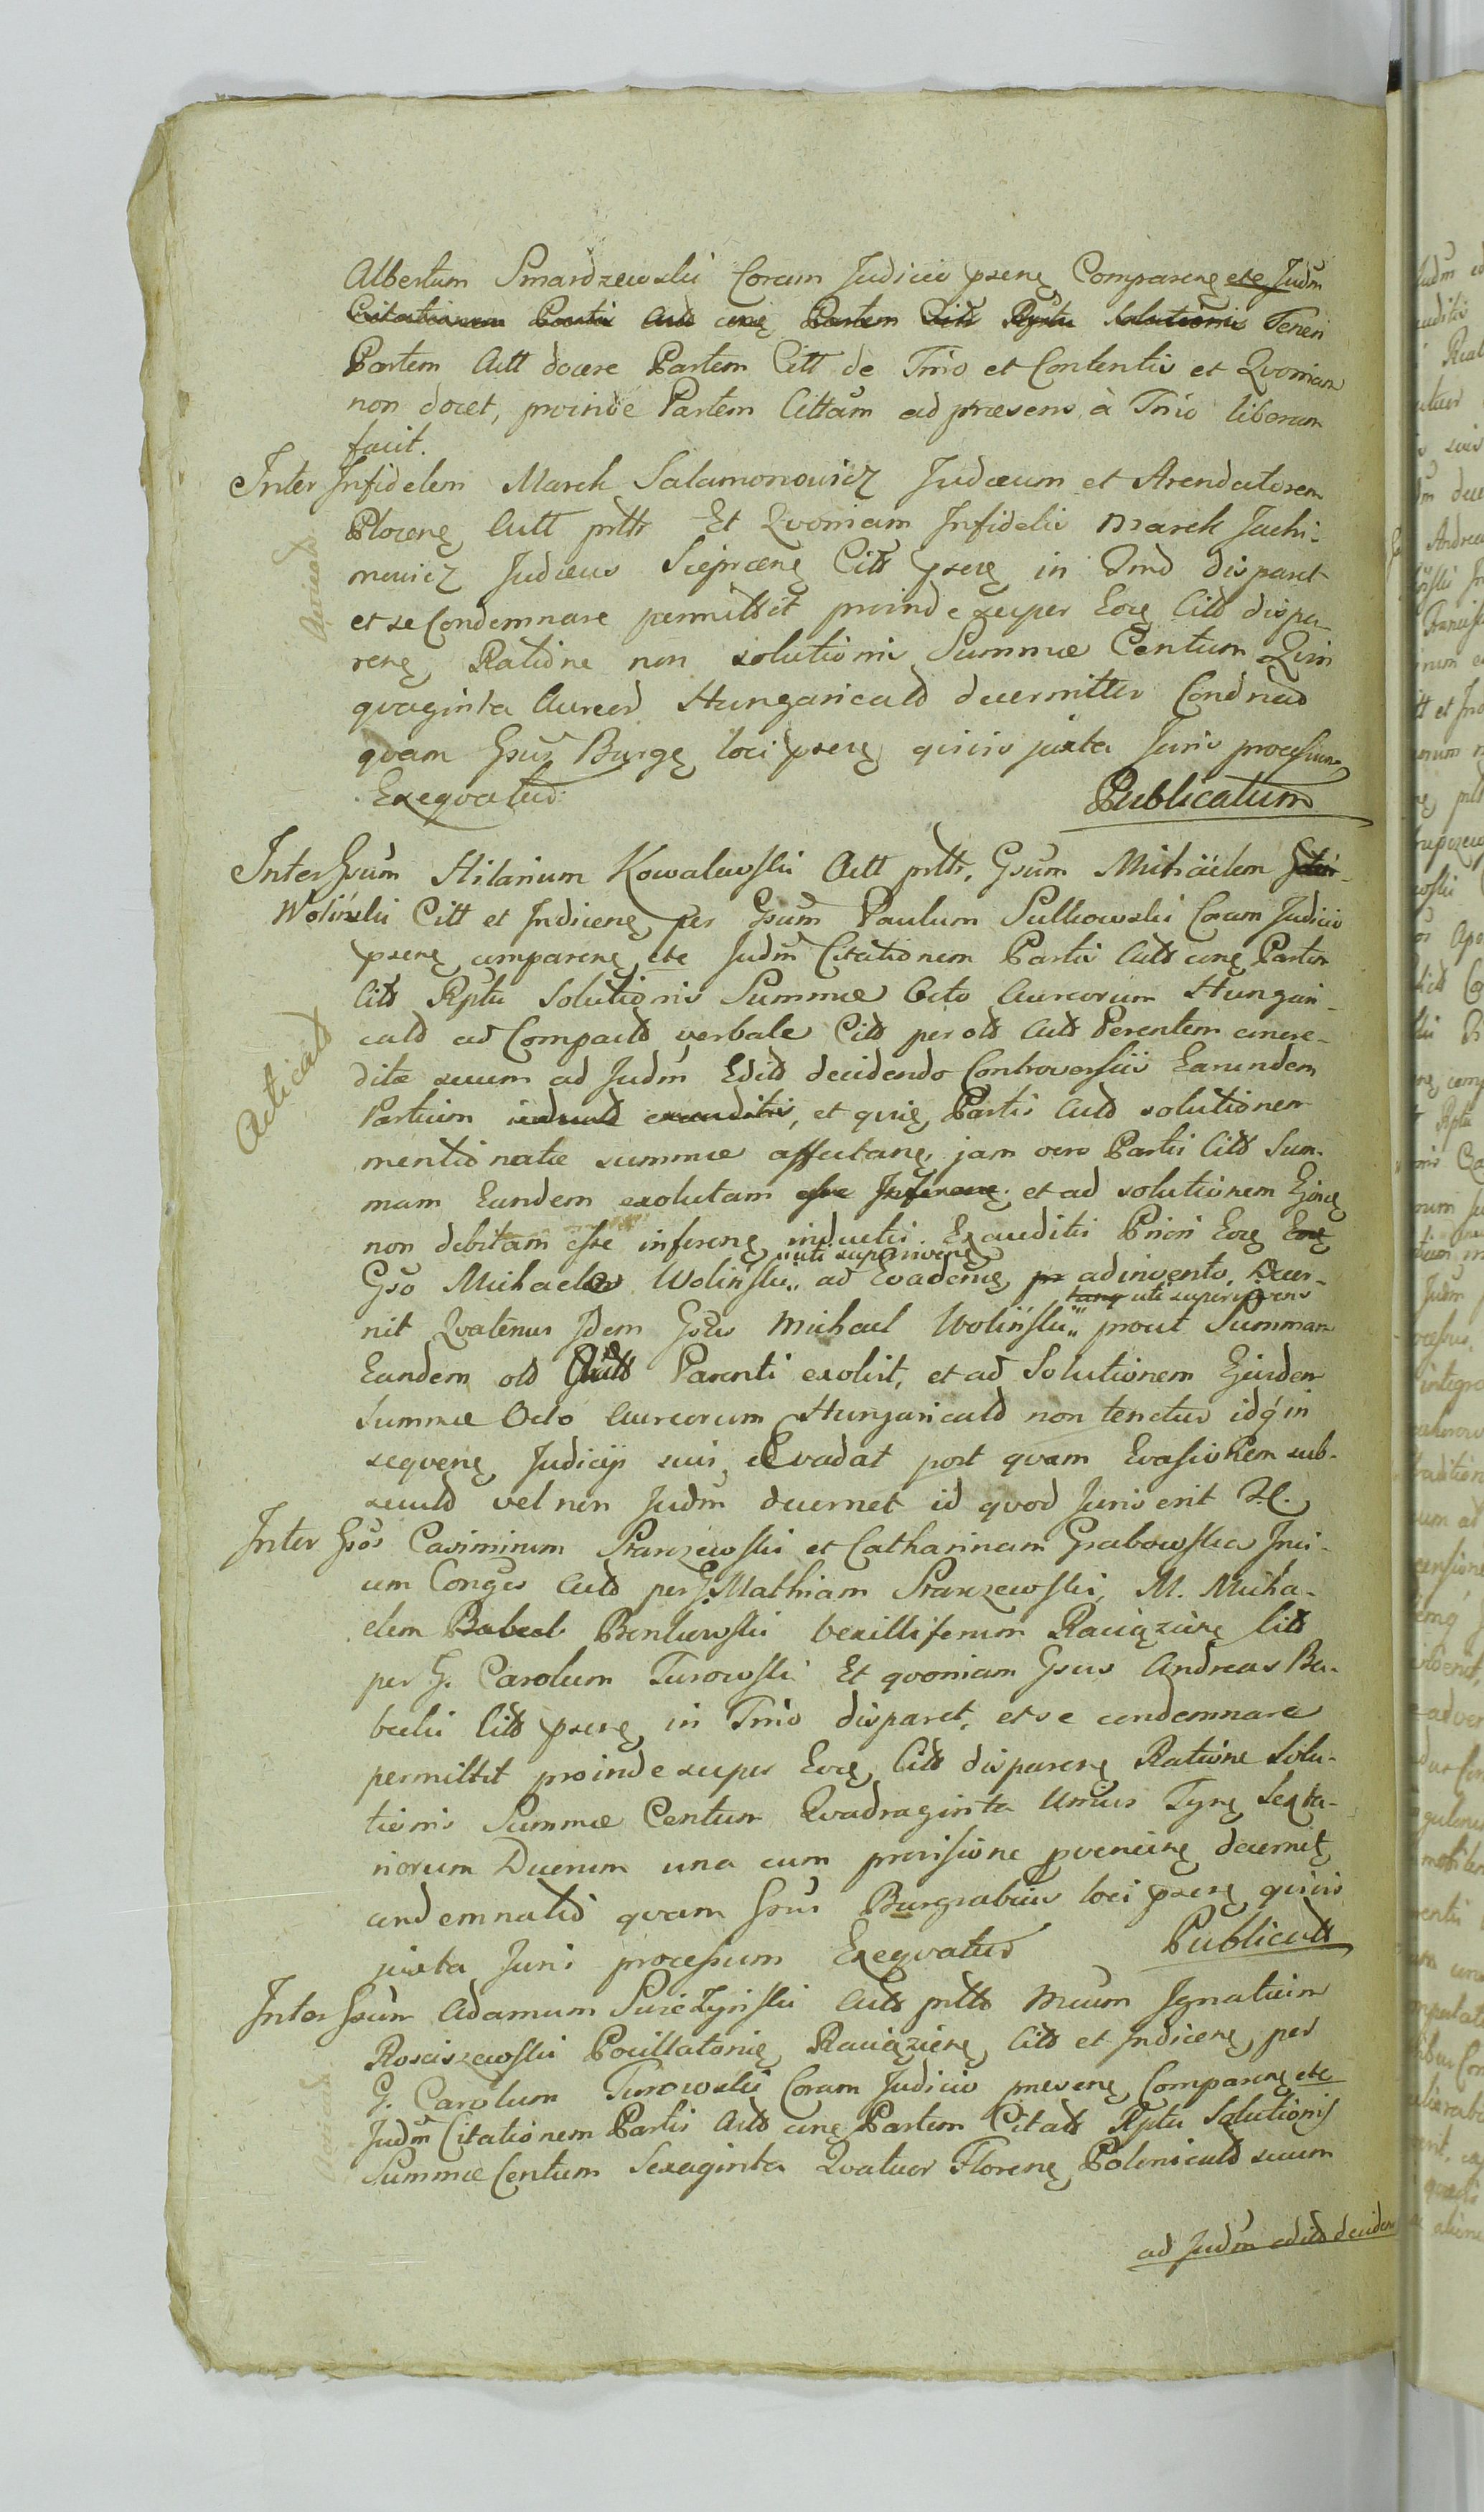 Albertum Smardzewski Coram Judicio psenę Comparenę etc Judm̃
Citationem Partis Actt cunę Partem Citt Rptu Solutionis Teneri
Partem Actt docere Partem Citt de Tñio et Contentis et Qvoniam
non docet, proinde Partem Cittam ad præsens à Tñio liberam
facit.
Inter Infidelem Marek Salamonowicz Judæum et Arendatorem
Plocenę Actt pltt Et Qvoniam Infidelis Marek Jachi-
mowicz Judæus Sieprcenę Citt psenę in Tmõ disparet
et se Condemnare permittit proinde super Eoę Citt dispa-
renę Ratione non solutionis Summæ Centum Qvin
qvaginta Aureor Hungaricald decernitur Condnad
qvam Gsus Burgę loci psenę qvivis juxta Juris processum
Exeqvatur
Publicatum
Inter Gsum Hilarium Kowalewski Actt pltt, Gsum Michäelem
Woliński Citt et Indicenę per Gsum Paulum Sulkowski Coram Judicio
psenę comparenę etc Judm̃ Citationem Partis Actt cunę Partem
Citt Rptu Solutionis Summæ Octo Aureorum Hungari-
cald ad Compactd verbale Citt per old Actt Parentem concre-
ditæ suum ad Judm̃ Editd decidendo Controversiis Earundem
Partium exauditis, et qvię Partis Actt solutionem
mentionatæ summæ affectanę, jam vero Partis Citt Sum-
mam Eandem exolutam esse Inferenę et ad solutionem Ejnę
non debitam esse inferenę inductis. Exauditis Priori Eoę Eoę
uti supervivenę
Gso Michaele Woliński ad Evadenę pr adinvento, Decer-
tanq uti supervivens
nit Qvatenus Idem Gsus Michael Woliński prout Summam
Eandem old Actt Parenti exolvit, et ad Solutionem Ejusdem
Summæ Octo Aureorum Hungaricald non tenetur idq in
seqvenę Judicij sui, Evadat post qvam Evasionem sub-
secutd vel non Judm̃ decernet id qvod Juris erit
Inter Gsos Casimirum Pranzewski et Catharinam Grabowska Jnvi-
cem Conges Actt per G. Mathiam Pranzewski, M. Micha-
elem Babeck Bentkowski Vexilliferum Raciązienę Citt
per G. Carolum Turowski Et qvoniam Gsus Andreas Ba-
becki Citt psenę in Tñio disparet, et se condemnare
permittit proinde super Eoę Citt disparenę Ratione Solu-
tionis Summæ Centum Qvadraginta Unius Tynę Sexta-
riorum Duorum una cum provisione pvenienę decernitę
condemnatid qvam Gsus Burgrabius loci psenę qvivis
juxta Juris processum Exeqvatur
Publicatt
Inter Gsum Adamum Swięzyński Actt pltt Mcum Ignatium
Rosciszewski Pocillatorię Raciązienę Citt et Indicenę per
G. Carolum Turowski Coram Judicio presenę Comparenę etc
Judm̃ Citationem Partis Actt cunę Partem Citatt Rptu Solutionis
Summæ Centum Sexaginta Qvatuor Florenę Polonicald suum
ad Judm̃ editd deciden
Acticatd
Acticatd